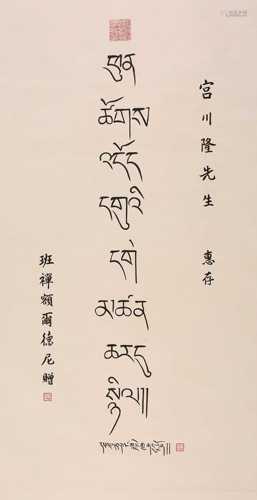 宮川隆先生 惠存
ཕུན
ཚོགས
འདོད
དགུའི
དགེ
མཚན
ཆར་དུ
སྙིལ།།
班禪額爾德尼贈